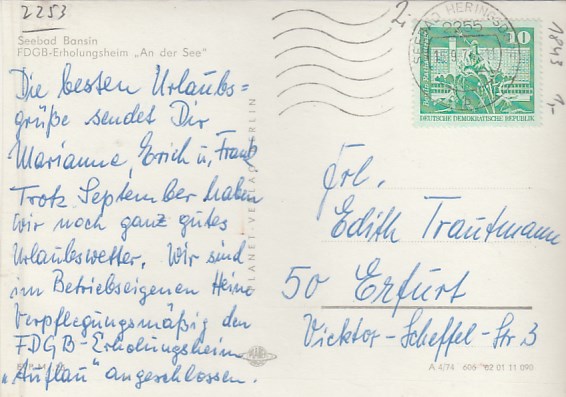 2253
Seebad Bansin
FDGB-Erholungsheim „An der See"
Die besten Urlaubs=
grüße sendet Dir
Marianne, Erich u. Frank
Trotz September haben
wir noch ganz gutes
Urlaubswetter. Wir sind
im Betriebseigenen Heime
Verpflegungsmäßig den
FDGB-Erholungsheim
„Aufbau" angeschlossen.
PLANET-VERLAG BERLIN
2
SEEBAD HERINGSDORF
2255
10
DEUTSCHE DEMOKRATISCHE REPUBLIK
1843
1,-
Frl.
Edith Trautmann
50 Erfurt
Vicktor-Scheffel-Str 3
A 4/74 606 02 01 11 090